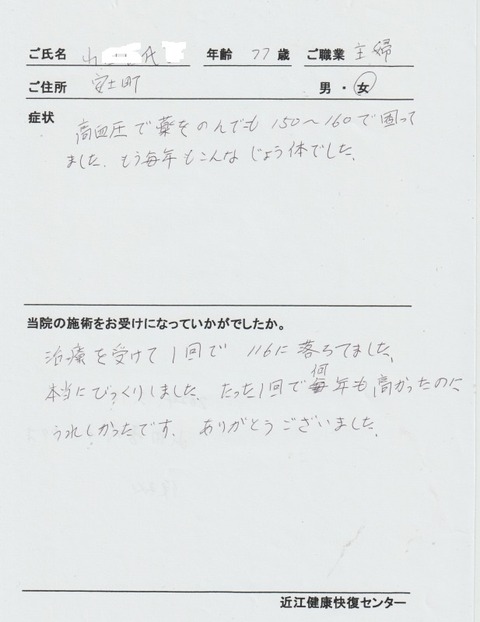 ご氏名 年齢 77 歳 ご職業 主婦
ご住所 安土町 男・女
症状
高血圧で薬をのんでも 150〜160で困って
ました. もう毎年もこんな じょう体でした.
当院の施術をお受けになっていかがでしたか。
治療を受けて 1回で 116に 落ちてました.
本当にびっくりしました. たった1回で何年も高かったのに
うれしかったです. ありがとうございました.
近江健康快復センター